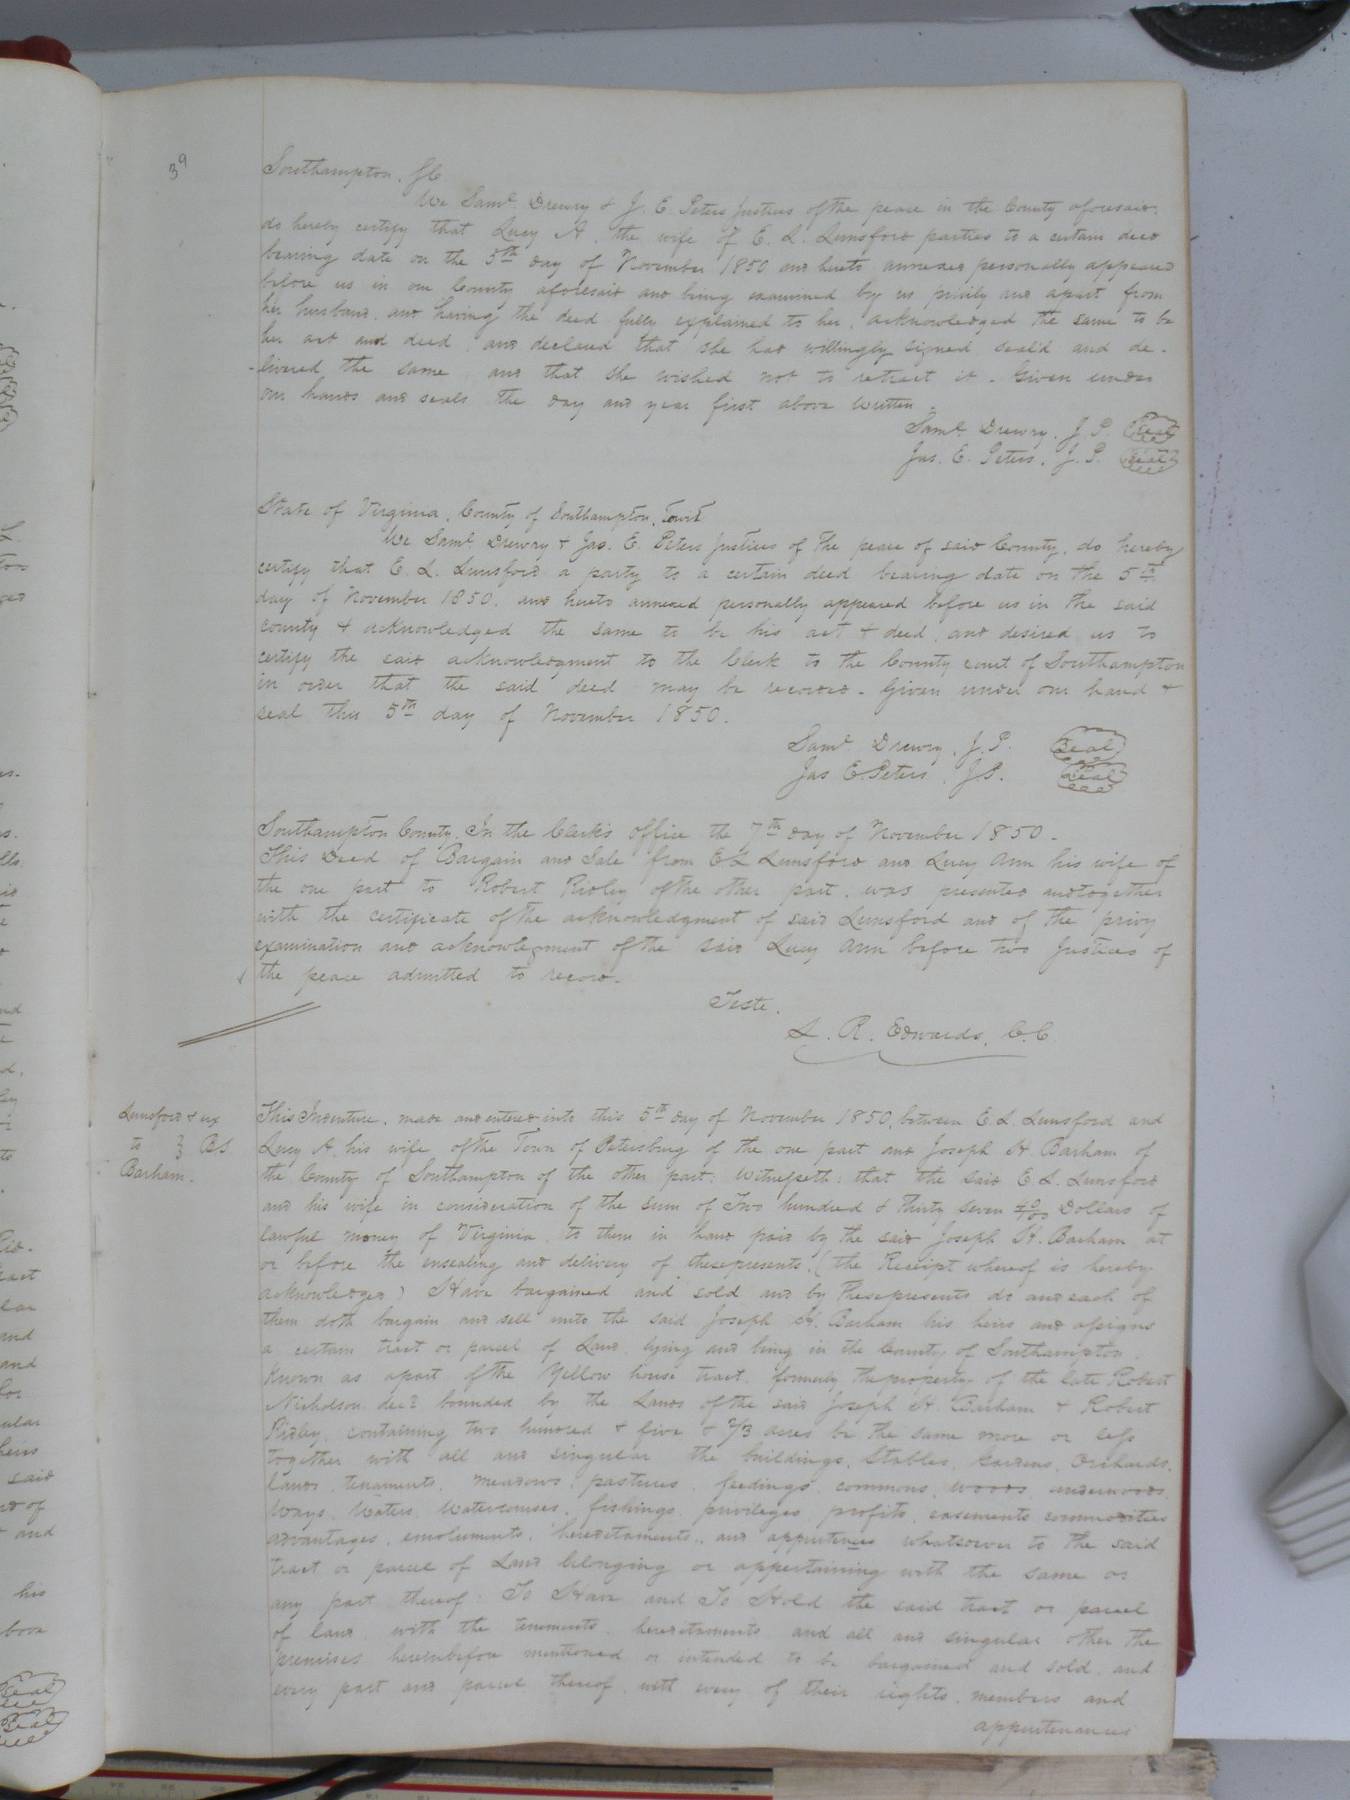 39
Southampton, Sc
We Saml. Drewry & J. E. Peters Justices of the peace in the County aforesaid,
do hereby certify that Lucy A. the wife of E. L. Lunsford parties to a certain deed
bearing date on the 5th day of November 1850 and hereto annexed personally appeared
before us in our County aforesaid and being examined by us privily and apart from
her husband, and having the deed fully explained to her, acknowledged the same to be
her act and deed, and declared that she had willingly signed seal'd and de-
-livered the same, and that she wished not to retract it. Given under
our hands and seals the day and year first above written.
Saml. Drewry. J. P. Seal
Jas. E. Peters. J. P. Seal
State of Virginia, County of Southampton, Towit
We Saml. Drewry & Jas. E. Peters Justices of the peace of said County, do hereby
certify that E. L. Lunsford a party to a certain deed bearing date on the 5th
day of November 1850. and hereto annexed personally appeared before us in the said
County & acknowledged the same to be his act & deed, and desired us to
certify the said acknowledgment to the Clerk to the County court of Southampton
in order that the said deed may be recorded. Given under our hand &
seal this 5th day of November 1850.
Saml. Drewry. J. P. Seal
Jas E. Peters. J P. Seal
Southampton County. In the Clerk's office the 7th day of November 1850.
This Deed of Bargain and Sale from E L Lunsford and Lucy Ann his wife of
the one part to Robert Ridley of the other part, was presented and together
with the certificate of the acknowledgment of said Lunsford and of the privy
examination and acknowlegment of the said Lucy Ann before two Justices of
the peace admitted to record.
Teste.
L. R. Edwards, C.C.
Lunsford & ux
to BS
Barham.
This Indenture, made and entered into this 5th day of November 1850, between E. L. Lunsford and
Lucy A. his wife of the Town of Petersburg of the one part and Joseph H Barham of
the County of Southampton of the other part: Witnesseth: that the said E L. Lunsford
and his wife in consideration of the sum of Two hundred & thirty seven 40/100 Dollars of
lawful money of Virginia, to them in hand paid by the said Joseph H. Barham at
or before the ensealing and delivery of these presents, (the Receipt whereof is hereby
acknowledged) Have bargained and sold and by these presents do and each of
them doth bargain and sell unto the said Joseph H. Barham his heirs and assigns
a certain tract or parcel of Land, lying and being in the County of Southampton,
known as apart of the Yellow house tract, formerly the property of the late Robert
Nicholson decd. bounded by the Lands of the said Joseph H. Barham & Robert
Ridley, containing two hundred & five & 2/3 acres be the same more or less
together with all and singular the buildings, Stables, Gardens, Orchards,
lands, tenaments, meadows, pastures, feedings, commons, woods, underwoods,
Ways, Waters, Watercourses, fishings, privileges, profits, easements commodities
advantages, emoluments, heredetaments, and appurtences whatsoever to the said
tract or parcel of Land belonging or appertaining with the same or
any part thereof: To Have and To Hold the said tract or parcel
of land with the tenements, heredetaments and all and singular other the
premises hereinbefore mentioned or intended to be bargained and sold, and
every part and parcel thereof, with every of their rights, members and
appurtenances